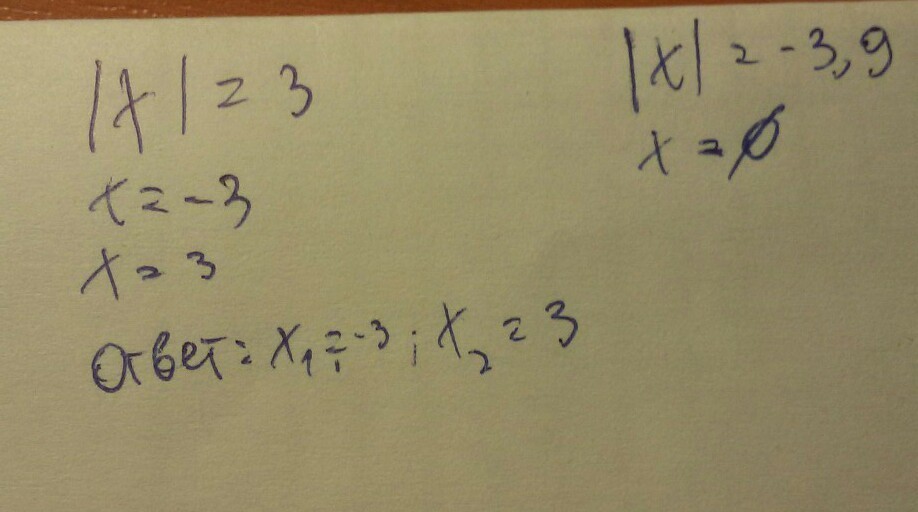 |x| = 3
x = -3
x = 3
Ответ: x₁ = -3; x₂ = 3
|x| = -3,9
x = ∅